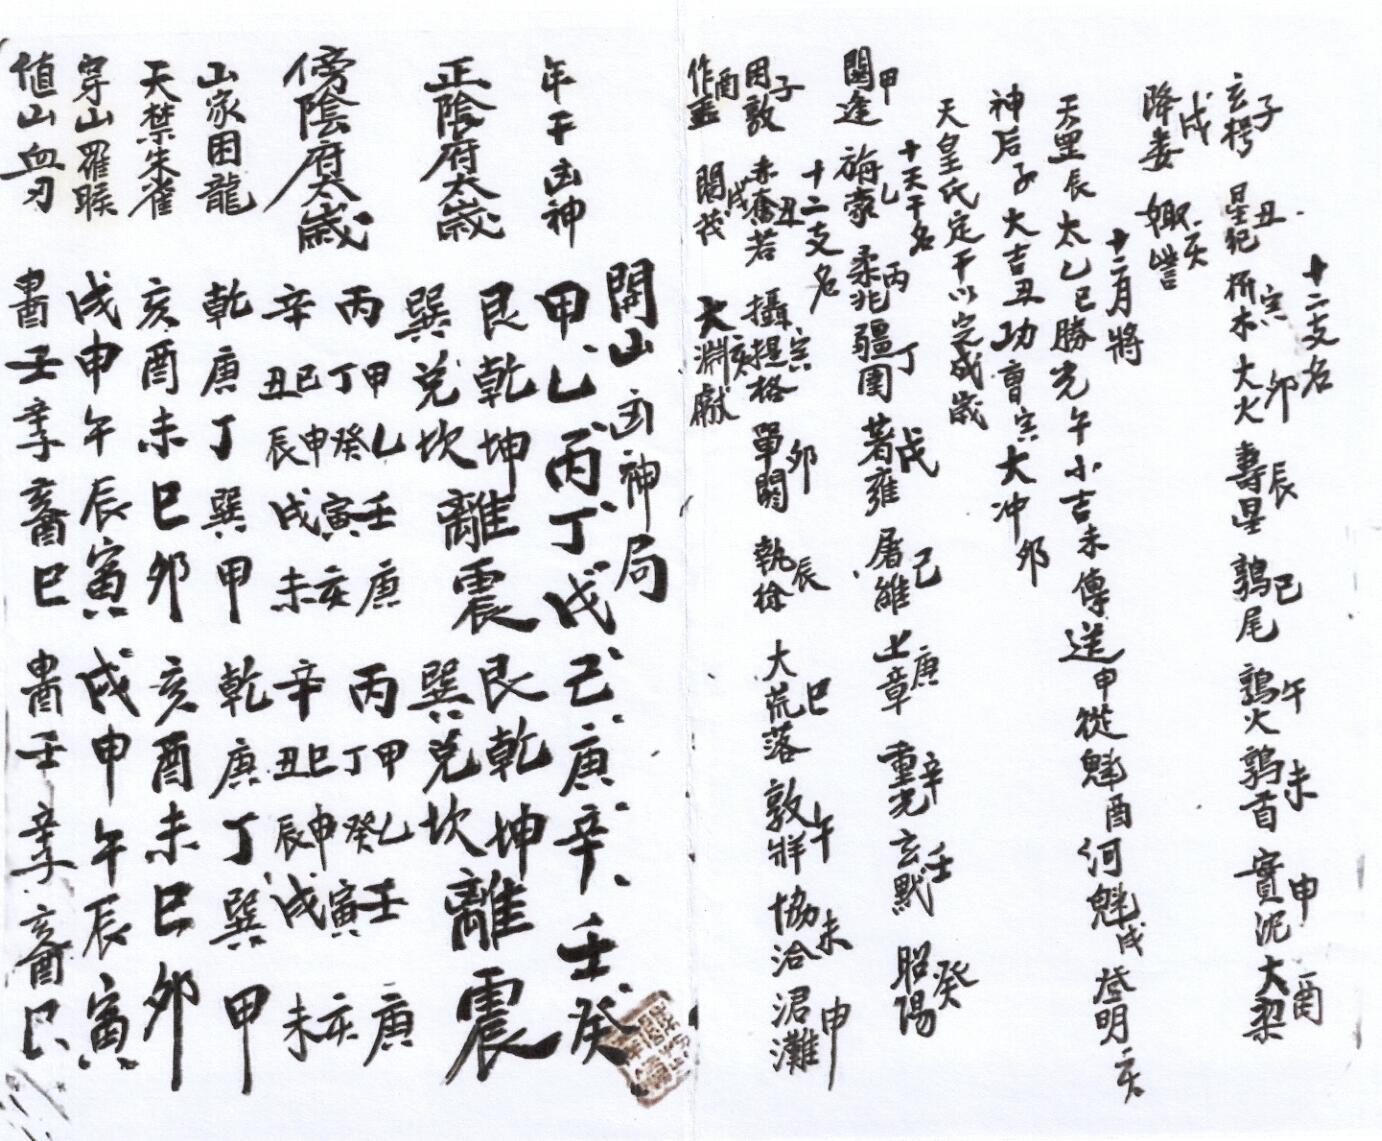 十二支名
玄枵子 星紀丑 析木寅 大火卯 壽星辰 鶉尾巳 鶉火午 鶉首未 實沉申 大梁酉
降婁戌 娵訾亥
十二月將
天罡辰 太乙巳 勝光午 小吉未 傳送申 從魁酉 河魁戌 登明亥
神后子 大吉丑 功曹寅 大冲卯
天皇氏定干以定成歲
十天干名
閼逢甲 旃蒙乙 柔兆丙 疆圉丁 著雍戊 屠維己 上章庚 重光辛 玄黓壬 昭陽癸
十二支名
困敦子 赤奮若丑 攝提格寅 單閼卯 執徐辰 大荒落巳 敦牂午 協洽未 涒灘申
作噩酉 閹茂戌 大淵獻亥
開山凶神局
年干凶神 甲乙丙丁戊己庚辛壬癸
正陰府太歲 艮乾坤離震艮乾坤離震
巽兌坎 巽兌坎
傍陰府太歲 丙甲乙壬庚 丙甲乙壬庚
丁癸寅亥 丁癸寅亥
辛巳申戌未 辛巳申戌未
丑辰 丑辰
山家困龍 乾庚丁巽甲乾庚丁巽甲
天禁朱雀 亥酉未巳卯亥酉未巳卯
穿山羅睺 戌申午辰寅戌申午辰寅
值山血刃 壬辛子亥酉巳 壬辛子亥酉巳